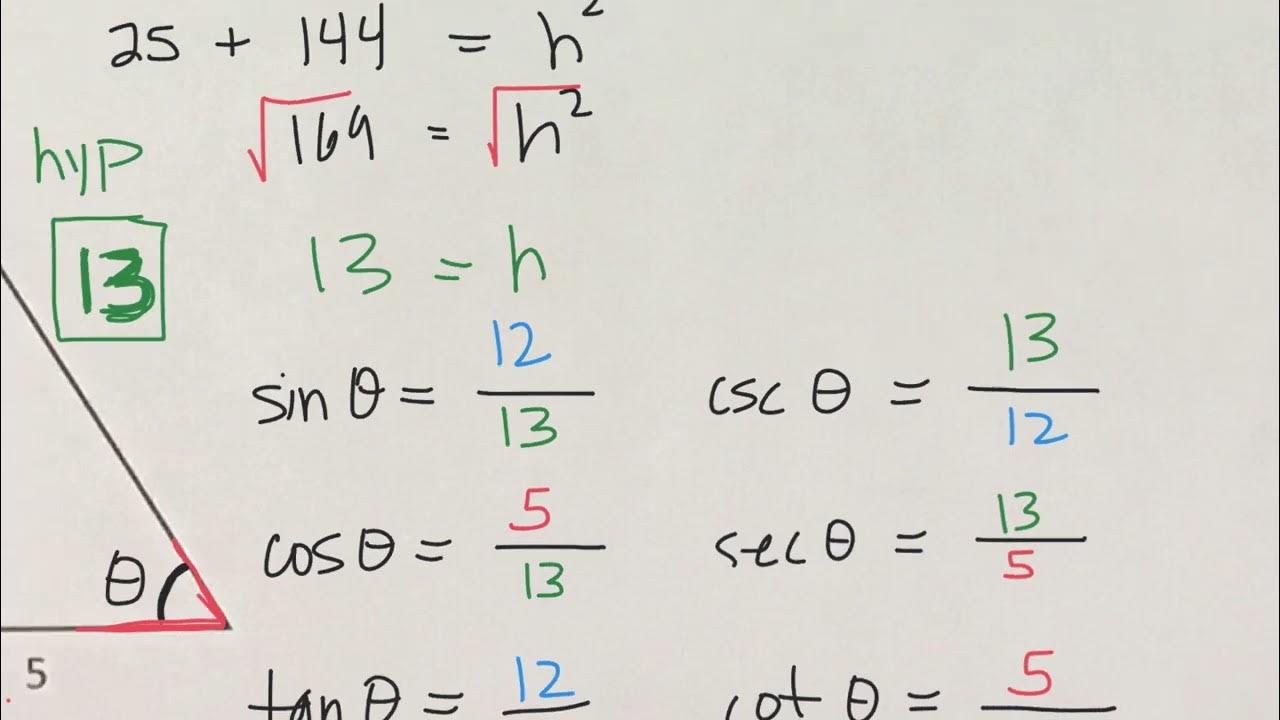 25 + 144 = h²
√169 = √h²
hyp
13
13 = h
sin θ = 12/13
csc θ = 13/12
cos θ = 5/13
sec θ = 13/5
θ
5
tan θ = 12
cot θ = 5